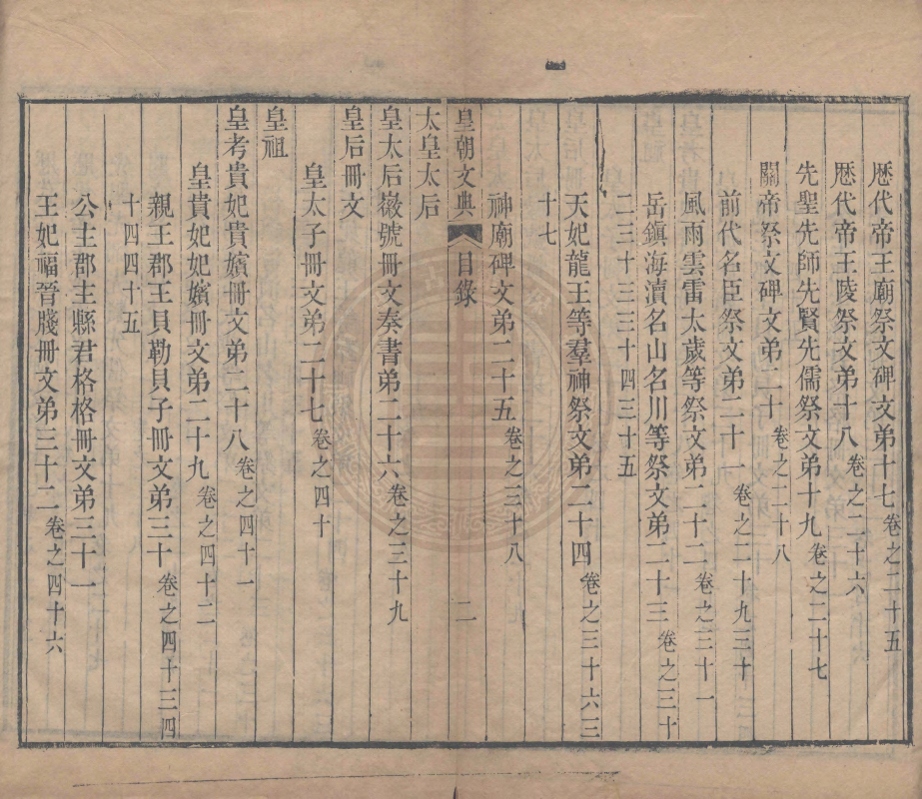 歷代帝王廟祭文碑文弟十七卷之二十五
歷代帝王陵祭文弟十八卷之二十六
先聖先師先賢先儒祭文弟十九卷之二十七
關帝祭文碑文弟二十卷之二十八
前代名臣祭文弟二十一卷之二十九三十
風雨雲雷太歲等祭文弟二十二卷之三十一
岳鎮海瀆名山名川等祭文弟二十三卷之三十
二三十三三十四三十五
天妃龍王等羣神祭文弟二十四卷之三十六三
十七
神廟碑文弟二十五卷之三十八
皇朝文典 目錄 二
太皇太后
皇太后徽號冊文奏書弟二十六卷之三十九
皇后冊文
皇太子冊文弟二十七卷之四十
皇祖
皇考貴妃貴嬪冊文弟二十八卷之四十一
皇貴妃妃嬪冊文弟二十九卷之四十二
親王郡王貝勒貝子冊文弟三十卷之四十三四
十四四十五
公主郡主縣君格格冊文弟三十一
王妃福晉牋冊文弟三十二卷之四十六